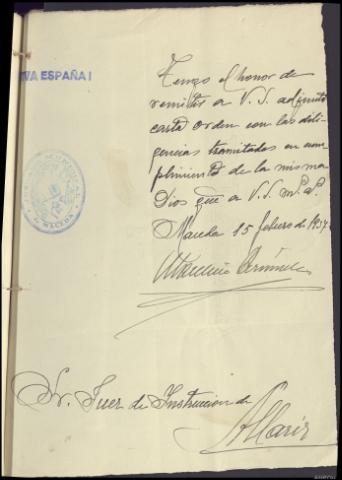 VA ESPAÑA!
Tengo el honor de
remitir a V. S. adjunto
carta orden con las dili-
gencias tramitadas en cum-
plimiento de la misma
Dios gue a V. S. m. a.
Maceda 15 febrero de 1937
Sr. Juez de Instruccion de
Allariz
MACEDA